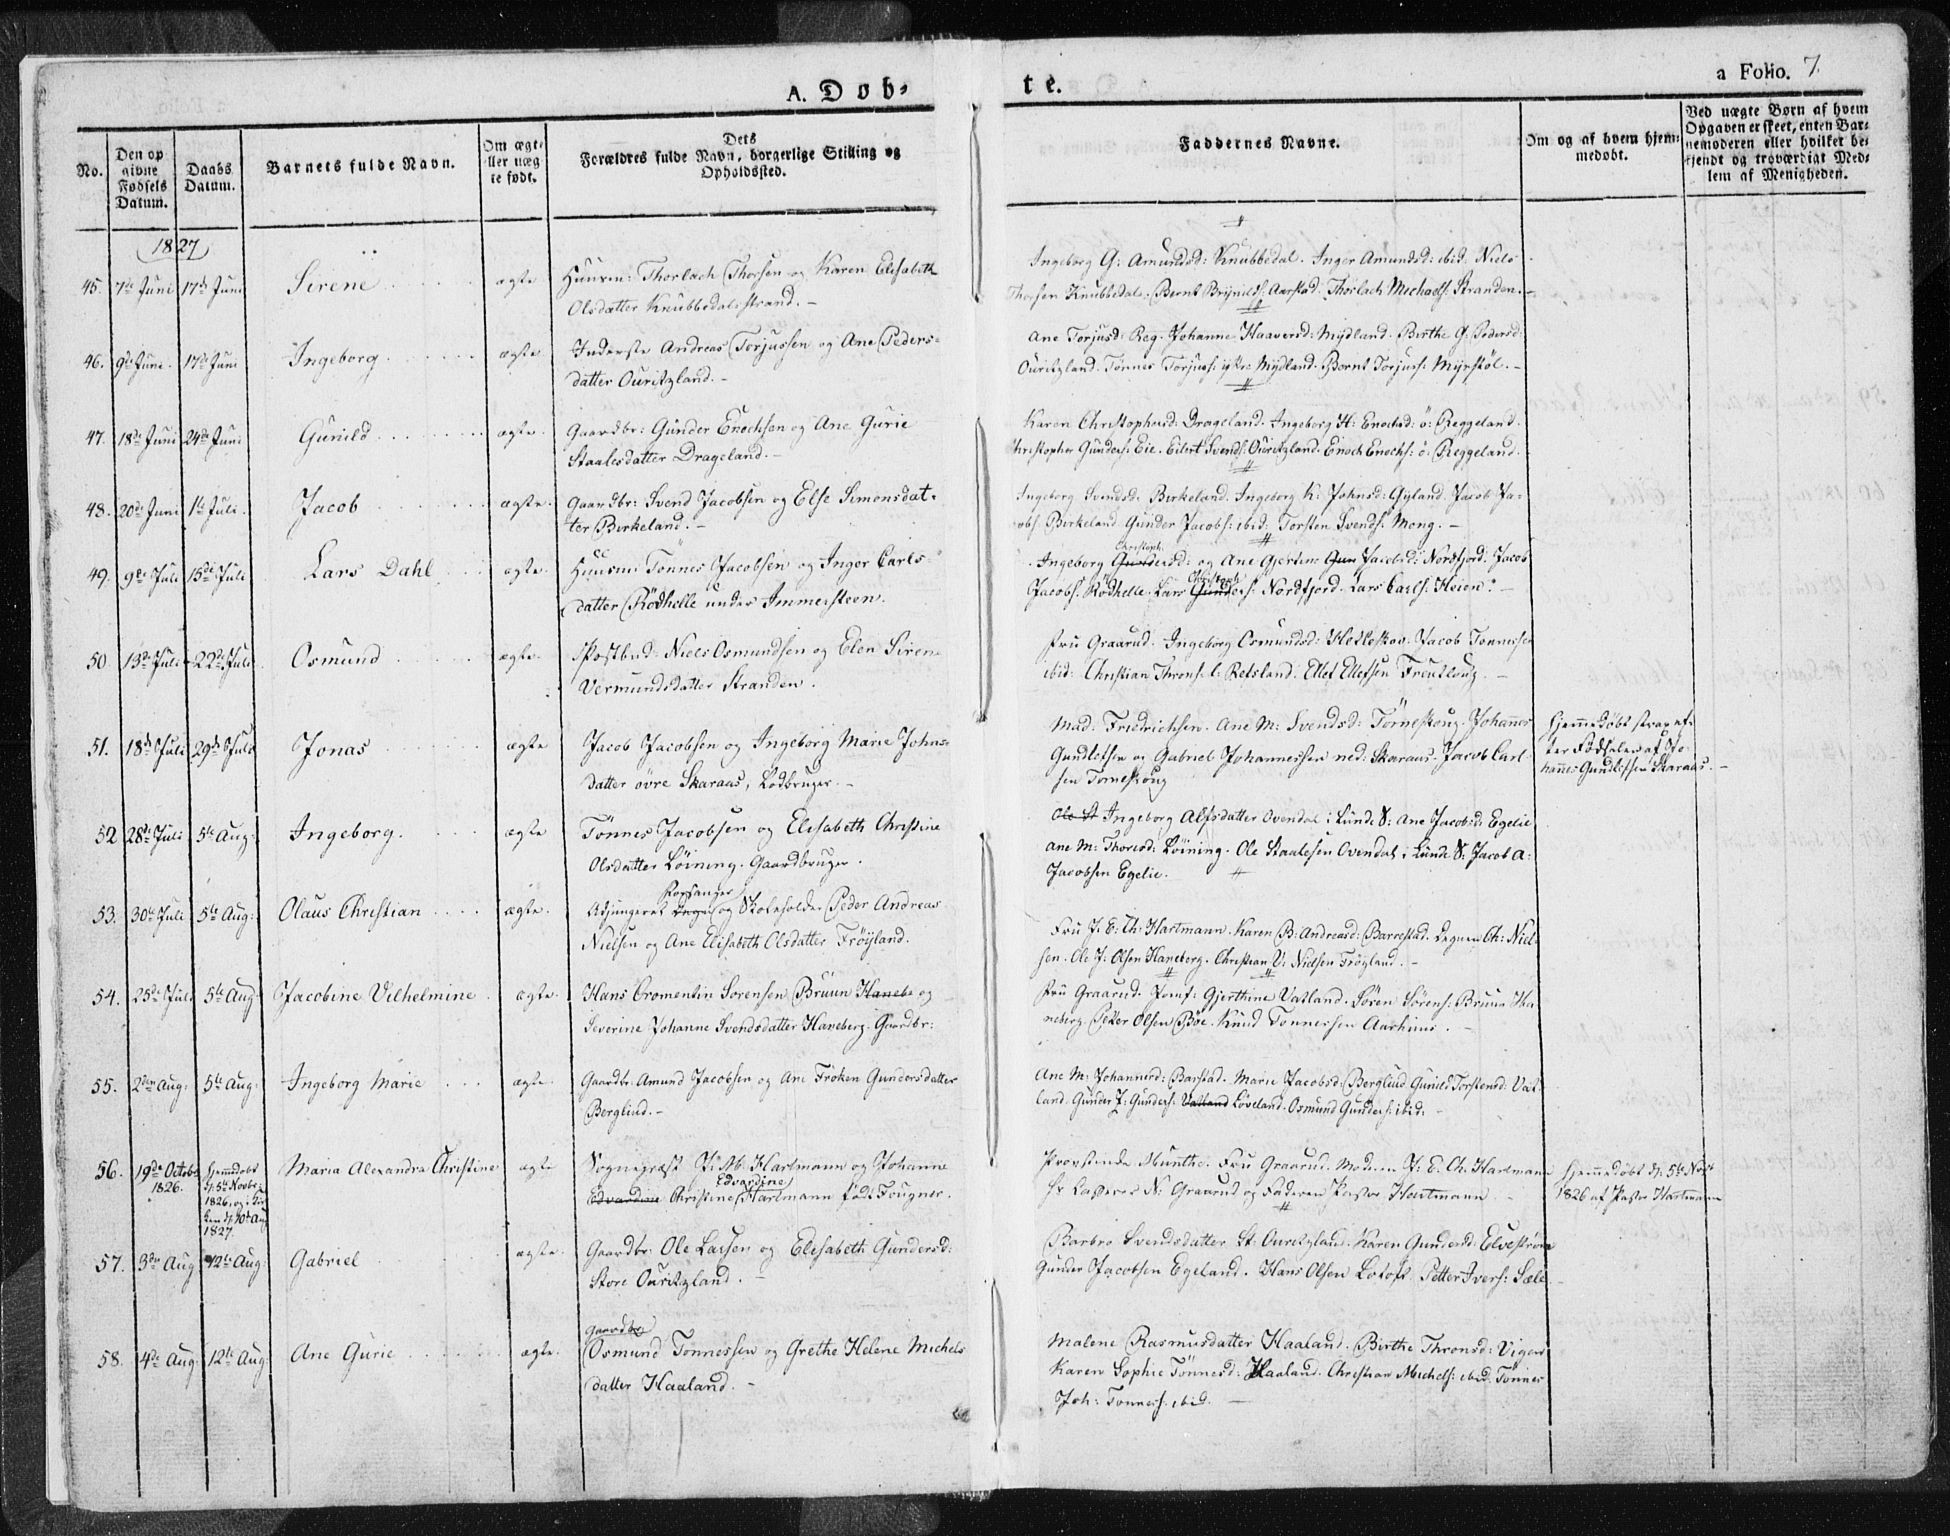 A. Døb-
te.
a Folio. 7.
No.
Den op
givne
Fødsels
Datum.
Daabs
Datum.
Barnets fulde Navn.
Om ægte
eller uæg
te født.
Dets
Forældres fulde Navn, borgerlige Stilling og
Opholdssted.
Faddernes Navne.
Om og af hvem hjem-
medøbt.
Ved uægte Børn af hvem
Opgaven er skeet, enten Bar-
nemoderen eller hvilket be-
kjendt og troværdigt Med-
lem af Menigheden.
1827
45. 7de Juni 17de Juni Sirene ægte
Huusm: Thorlach Thorsen og Karen Elisabeth
Olsdatter Knubbedalsstrand.
Ingeborg G: Amundsd: Knubbedal. Inger Amundsd: ibid. Niels
Thorsen Knubbedal. Bernt Brÿnilds: Aarstad. Thorlach Michaels: Stranden.
46. 9de Juni. 17de Juni Ingeborg ægte
Inderste Andreas Torjussen og Ane Peders-
datter Ouritzland.
Ane Torjusd: Reg. Johanne Haaversd: Mÿdland. Birthe G. Pedersd:
Ouritzland. Tønnes Torjuss: ytre Mÿdland. Bernt Torjuss: Mÿrstöl.
47. 18de Juni 24de Juni Gunild ægte.
Gaardbr: Gunder Enochsen og Ane Gurie
Staalesdatter Drageland.
Karen Christophersd: Drageland. Ingeborg H: Enochsd: ö: Reggeland.
Christopher Gunders: Eie. Eilert Svends: Ouritzland. Enoch Enochs: ö. Reggeland.
48. 20de Juni 1te Juli. Jacob ægte.
Gaardbr: Svend Jacobsen og Else Simonsdat-
ter Birkeland.
Ingeborg Svendsd: Birkeland. Ingeborg K: Johnsd: Gyland. Jacob Ja-
cobs: Birkeland. Gunder Jacobs: ibid: Torsten Svends: Mong.
49. 9de Juli 15de Juli Lars Dahl ægte.
Huusm: Tönnes Jacobsen og Inger Carls-
datter Rödhelle under Immersteen.
Christoph
Ingeborg Gundersd: og Ane Gjertine Gun Jacobsd: Nordfjord. Jacob
Christoph
Jacobs: Rödhelle. Lars Gunders: Nordfjord. Lars Carls: Heien.
50 13de Juli 22de Juli Osmund ægte.
Postbud: Niels Osmundsen og Elen Sirene
Vermundsdatter Stranden.
Fru Graarud. Ingeborg Osmundsd: Helleskov. Jacob Tönnessen
ibid: Christian Throns: l: Refsland. Ellef Ellefsen
51. 18de Juli 29de Juli Jonas ægte
Jacob Jacobsen og Ingeborg Marie Johns-
datter øvre Skaraas, Lodbruger.
Mad: Friedrichsen. Ane M: Svendsd: Törneskoug. Johannes
Gundlefsen og Gabriel Johannessen ned: Skaraas. Jacob Carl-
sen Torneskoug
Hjemmedöbt strax ef-
ter Födselen af Jo-
hannes Gundlefsen Skaraas.
52 28de Juli 5te Aug: Ingeborg. ægte
Tönnes Jacobsen og Elisabeth Christine
Olsdatter Löining. Gaardbruger.
Ole St Ingeborg Alfsdatter Ovendal i Lunde S: Ane Jacobsd: Egelie
Ane M: Thoresd: Löining. Ole Staalesen Ovendal i Lunde S: Jacob A:
Jacobsen Egelie.
53. 30te Juli 5te Aug: Olaus Christian ægte.
Forsanger
Adjungeret og Skoleholder Peder Andreas
Nielsen og Ane Elisabeth Olsdatter Fröÿland.
Fru J. E: Ch: Hartmann. Karen B: Andreasd: Barrestad. Degnen Ch: Niel-
sen. Ole J: Olsen Haneberg. Christian V: Nielsen Fröyland.
54. 25de Juli 5te Aug: Jacobine Vilhelmine ægte
Hans Cromentin Sørensen Bruun Haneb: og
Severine Johanne Svendsdatter Haneberg. Gaardbr:
Fru Graarud. Jomf: Gjerthine Vatland. Sören Sörens: Bruun Ha-
neberg. Peder Olsen Böe. Knud Tonnessen Aarhuus.
55. 2den Aug: 5te Aug: Ingeborg Marie ægte
Gaardbr: Amund Jacobsen og Ane Fröken Gundersdatter
Berglund.
Ane M: Johannesd: Barstad. Marie Jacobsd: Berglund Gunild Torstensd: Vat-
land. Gunder J: Gunders: Vatland Löveland. Osmund Gunders: ibid:
56. 19de October
1826.
Hjemmedöbt
d: 5te Novbr:
1826, og i Kir
ken d: 10de Aug
1827.
Maria Alexandra Christine ægte
Sognepræst J: M: Hartmann og Johanne
Edvardine
Edvardine Christine Hartmann född Fougner.
Provstinde Munthe. Fru Graarud. Moderen J: E. Ch: Hartmann
Hr Lasseres N: Graarud og Faderen Pastor Hartmann
Hjemmedöbt d: 5te Nov:
1826 af Pastor Hartmann
57. 3die Aug 12te Aug: Gabriel ægte.
Gaardbr: Ole Larsen og Elisabeth Gundersd:
Store Ouritzland.
Barbro Svendsdatter St: Ouritzland. Karen Gundersd: Elvestrøm
Gunder Jacobsen Egeland. Hans Olsen Lotoft. Petter Ivers: Sæle
58. 4de Aug: 12te Aug: Ane Gurie ægte.
Gaardbr
Osmund Tönnessen og Grethe Helene Michels-
datter Haaland.
Malene Rasmusdatter Haaland. Birthe Thronsd: Vigen
Karen Sophie Tönnesd: Haaland. Christian Michels: ibid. Tönnes
Joh: Tonness: ibid.